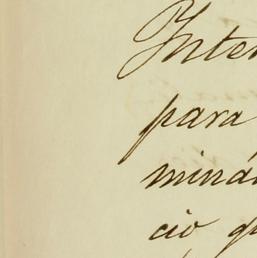 Inter
para
miná
cio q